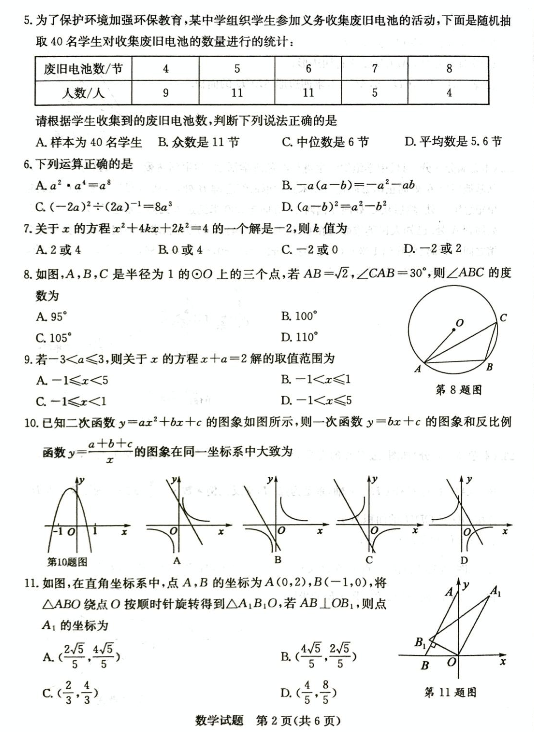 5.为了保护环境加强环保教育,某中学组织学生参加义务收集废旧电池的活动,下面是随机抽
取40名学生对收集废旧电池的数量进行的统计:
废旧电池数/节 4 5 6 7 8
人数/人 9 11 11 5 4
请根据学生收集到的废旧电池数,判断下列说法正确的是
A.样本为40名学生 B.众数是11节 C.中位数是6节 D.平均数是5.6节
6.下列运算正确的是
A.a²·a⁴=a⁸ B.-a(a-b)=-a²-ab
C.(-2a)²÷(2a)⁻¹=8a³ D.(a-b)²=a²-b²
7.关于x的方程x²+4kx+2k²=4的一个解是-2,则k值为
A.2或4 B.0或4 C.-2或0 D.-2或2
8.如图,A,B,C是半径为1的⊙O上的三个点,若AB=√2,∠CAB=30°,则∠ABC的度
数为
A.95° B.100°
C.105° D.110°
O
C
A
B
第8题图
9.若-3<a≤3,则关于x的方程x+a=2解的取值范围为
A.-1≤x<5 B.-1<x≤1
C.-1≤x<1 D.-1<x≤5
10.已知二次函数y=ax²+bx+c的图象如图所示,则一次函数y=bx+c的图象和反比例
函数y=(a+b+c)/x的图象在同一坐标系中大致为
y y y y y
-1 O 1 x O x O x O x O x
第10题图 A B C D
11.如图,在直角坐标系中,点A,B的坐标为A(0,2),B(-1,0),将
△ABO绕点O按顺时针旋转得到△A₁B₁O,若AB⊥OB₁,则点
A₁的坐标为
A.(2√5/5,4√5/5) B.(4√5/5,2√5/5)
C.(2/3,4/3) D.(4/5,8/5)
A y A₁
B₁
B O x
第11题图
数学试题 第2页(共6页)